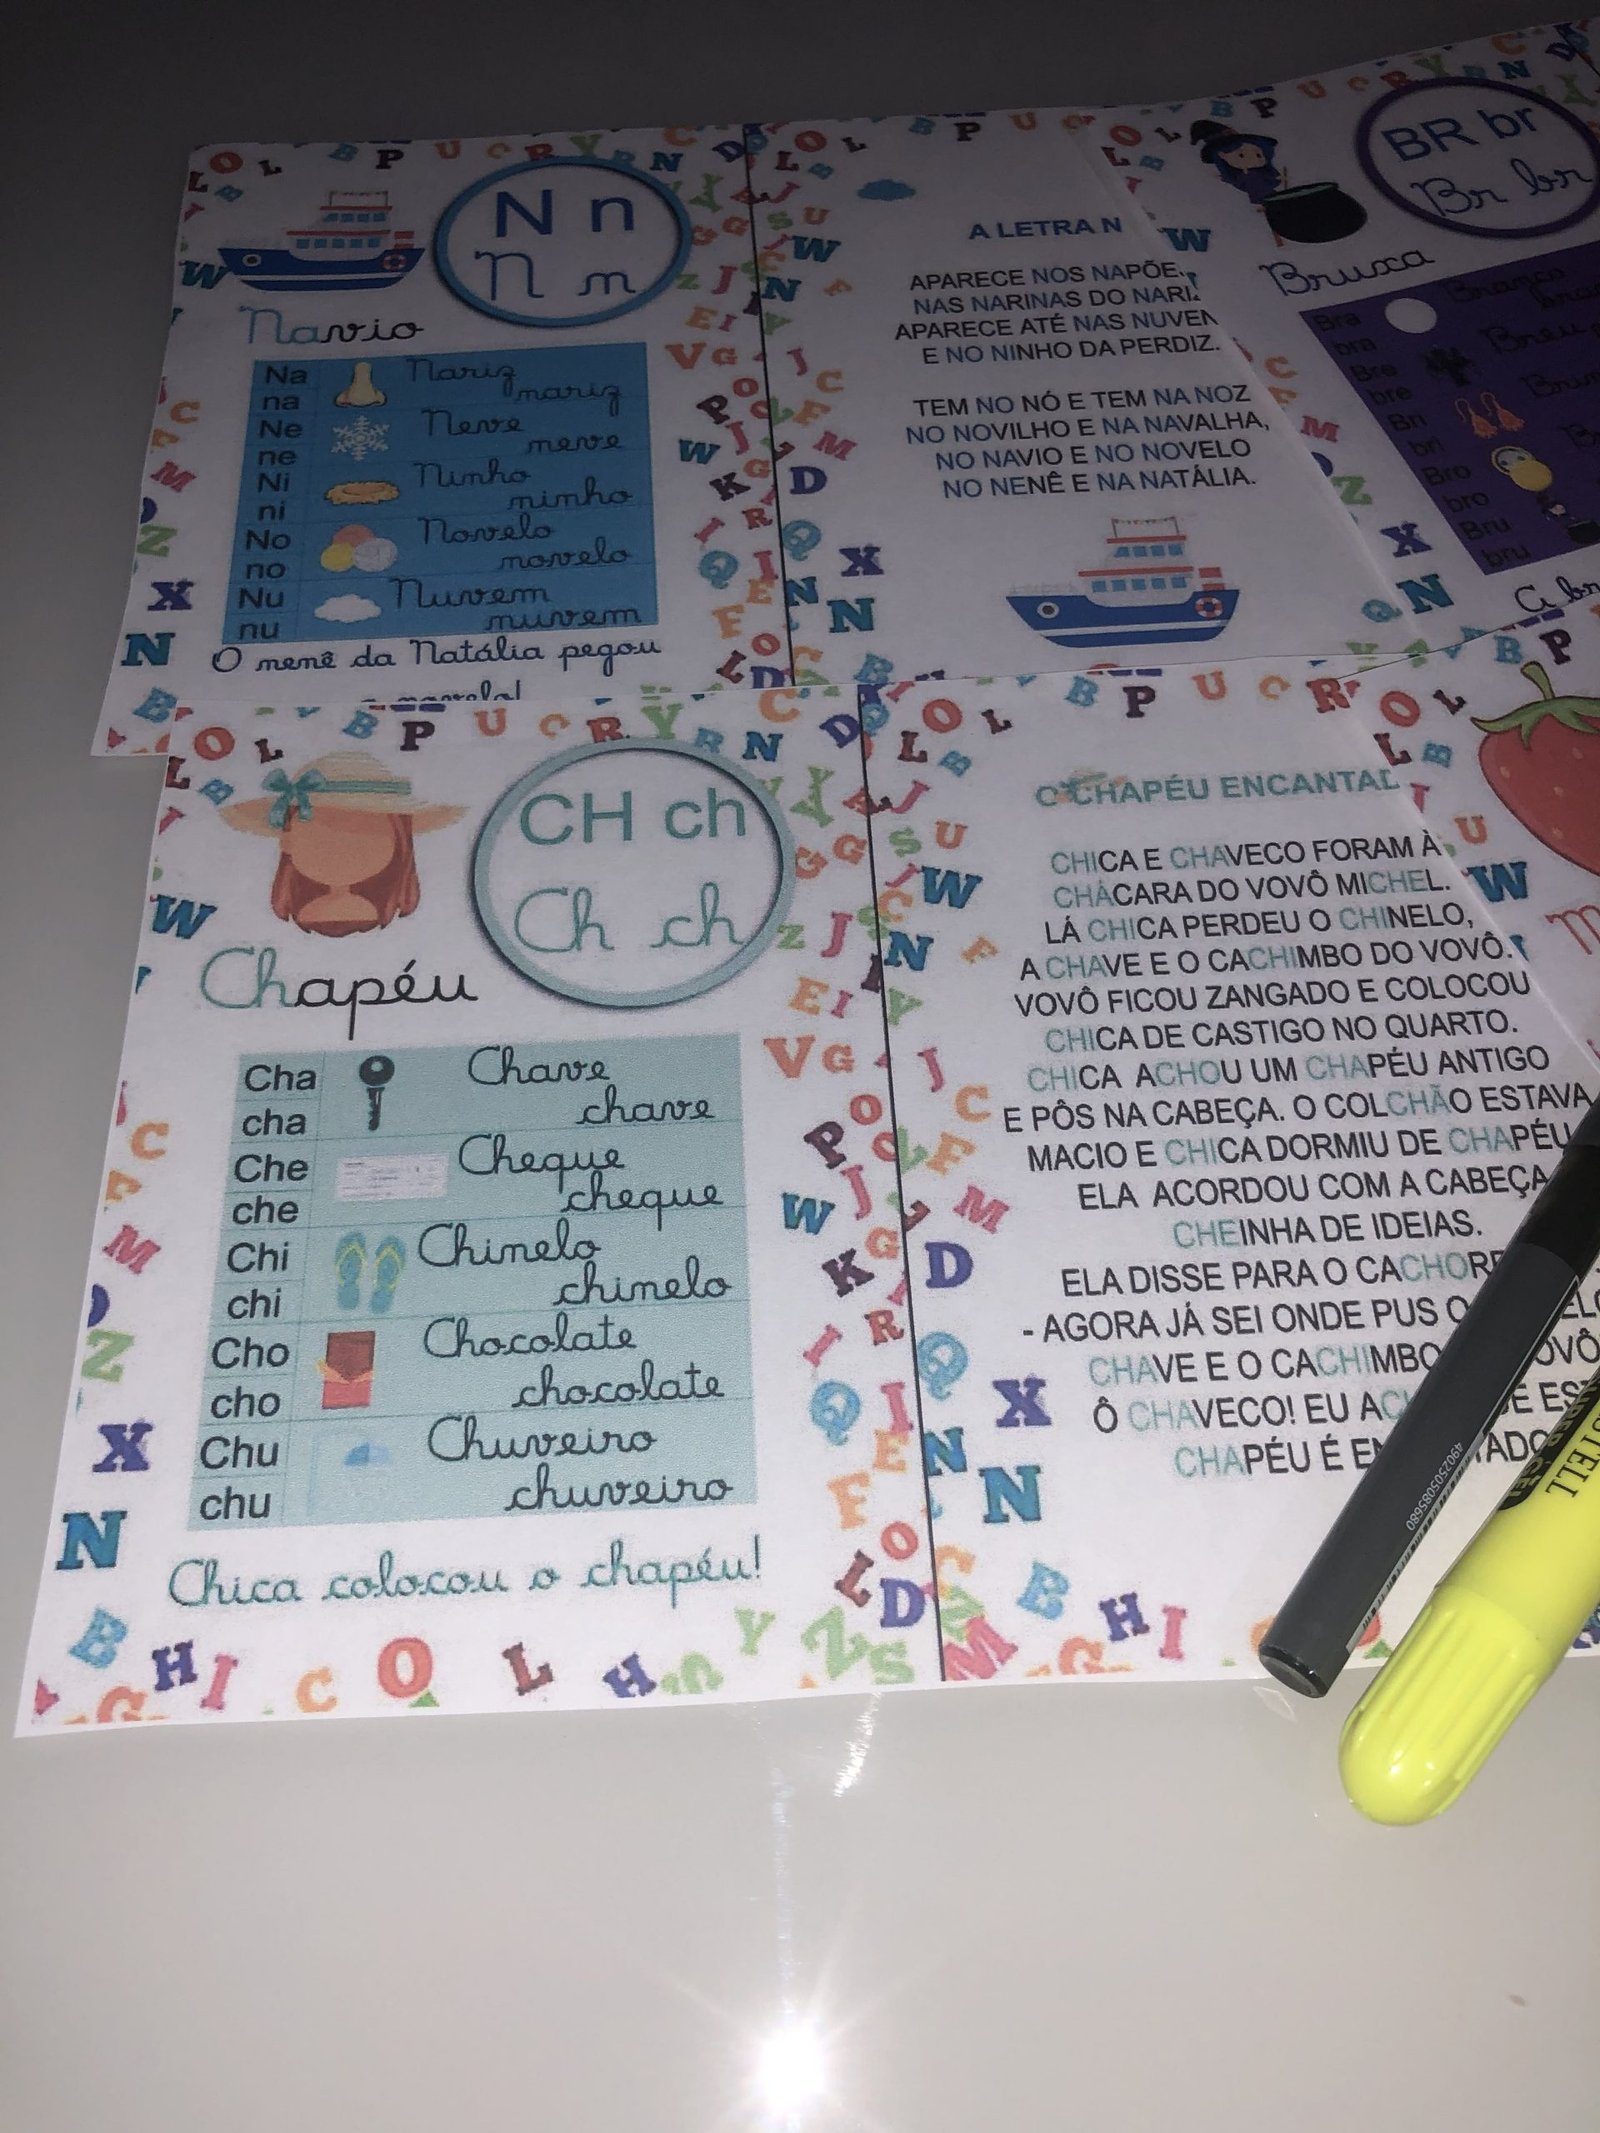 N n
N n
Navio
Na
na
Nariz
nariz
Ne
ne
Neve
neve
Ni
ni
Ninho
ninho
No
no
Novelo
novelo
Nu
nu
Nuvem
nuvem
O nenê da Natália pegou
A LETRA N
APARECE NOS
NAS NARINAS DO
APARECE ATÉ NAS
E NO NINHO DA PERDIZ.
TEM NO NÓ E TEM NA NOZ
NO NOVILHO E NA NAVALHA,
NO NAVIO E NO NOVELO
NO NENÊ E NA NATÁLIA.
BR br
Br br
Bruxa
Bra
bra
Bre
bre
Bri
bri
Bro
bro
Bru
bru
CH ch
Ch ch
Chapéu
Cha
cha
Chave
chave
Che
che
Cheque
cheque
Chi
chi
Chinelo
chinelo
Cho
cho
Chocolate
chocolate
Chu
chu
Chuveiro
chuveiro
Chica colocou o chapéu!
O CHAPÉU
CHICA E CHAVECO FORAM À
CHÁCARA DO VOVÔ MICHEL.
LÁ CHICA PERDEU O CHINELO,
A CHAVE E O CACHIMBO DO VOVÔ.
VOVÔ FICOU ZANGADO E COLOCOU
CHICA DE CASTIGO NO QUARTO.
CHICA ACHOU UM CHAPÉU ANTIGO
E PÔS NA CABEÇA. O COLCHÃO ESTAVA
MACIO E CHICA DORMIU DE CHAPÉU
ELA ACORDOU COM A CABEÇA
CHEINHA DE IDEIAS.
ELA DISSE PARA O
- AGORA JÁ SEI ONDE PUS O
CHAVE E O CACHIMBO
Ô CHAVECO! EU
CHAPÉU É
4902505085680